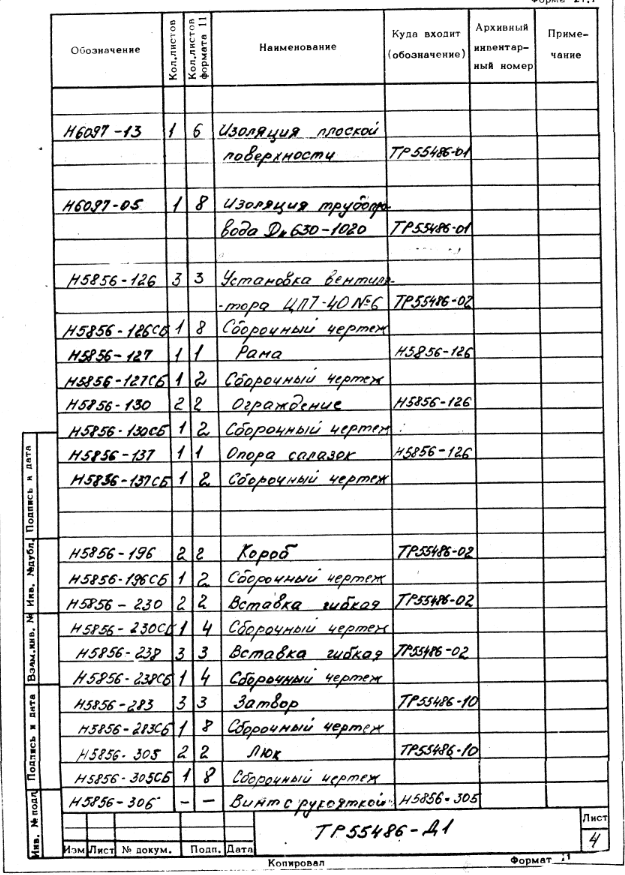 Форма 21,7
Обозначение Кол.листов Кол.листов формата 11 Наименование Куда входит (обозначение) Архивный инвентарный номер Примечание
Н6097-13 1 6 Изоляция плоской
поверхности ТР55486-01
Н6097-05 1 8 Изоляция трубопро-
вода Дн 630-1020 ТР55486-01
Н5856-126 3 3 Установка вентиля-
-тора ЦП7-40 №6 ТР55486-02
Н5856-126СБ 1 8 Сборочный чертеж
Н5856-127 1 1 Рама Н5856-126
Н5856-127СБ 1 2 Сборочный чертеж
Н5856-130 2 2 Ограждение Н5856-126
Н5856-130СБ 1 2 Сборочный чертеж
Н5856-137 1 1 Опора салазок Н5856-126
Н5856-137СБ 1 2 Сборочный чертеж
Н5856-196 2 2 Короб ТР55486-02
Н5856-196СБ 1 2 Сборочный чертеж
Н5856-230 2 2 Вставка гибкая ТР55486-02
Н5856-230СБ 1 4 Сборочный чертеж
Н5856-238 3 3 Вставка гибкая ТР55486-02
Н5856-238СБ 1 4 Сборочный чертеж
Н5856-283 3 3 Затвор ТР55486-10
Н5856-283СБ 1 8 Сборочный чертеж
Н5856-305 2 2 Люк ТР55486-10
Н5856-305СБ 1 8 Сборочный чертеж
Н5856-306 - - Винт с рукояткой Н5856-305
Подпись и дата
Инв. №дубл.
Взам.инв. №
Подпись и дата
Инв. №подл.
ТР55486-Д1
Лист
4
Изм Лист № докум. Подп. Дата
Копировал Формат 11